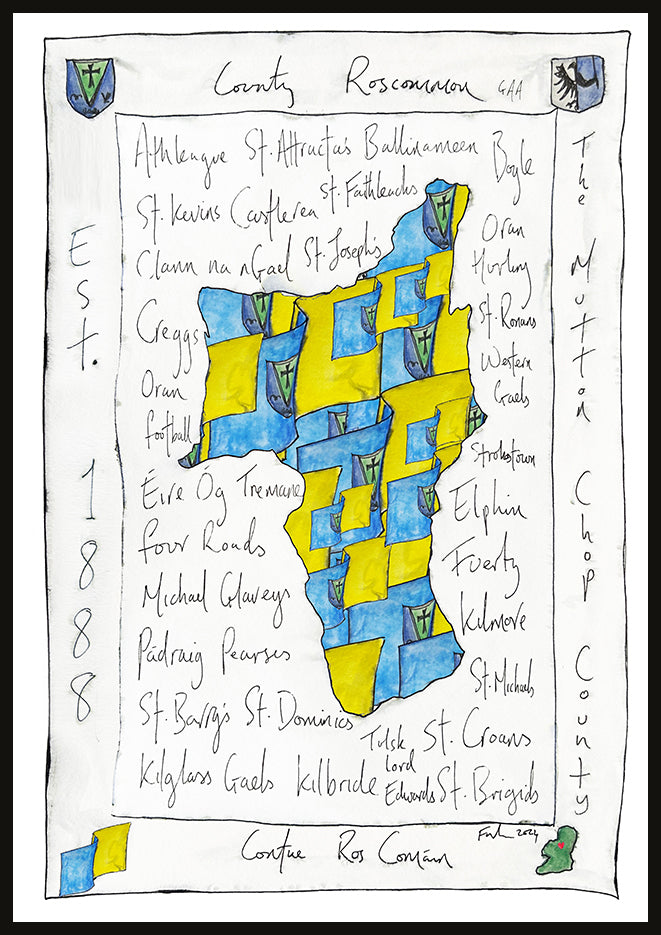 County Roscommon GAA
Est. 1888
The Mutton Chop County
Athleague St. Attracta's Ballinameen Boyle
St. Kevins Castlerea St. Faithleachs
Oran Hurling
Clann na nGael St. Joseph's
Creggs
St. Ronans
Western Gaels
Oran football
Strokestown
Éire Óg Tremane
Elphin
Four Roads
Fuerty
Michael Glaveys
Kilmore
Pádraig Pearses
St. Michaels
St. Barry's St. Dominics
Tulsk Lord Edwards
St. Croans
Kilglass Gaels Kilbride
St. Brigids
2024
Contae Ros Comáin